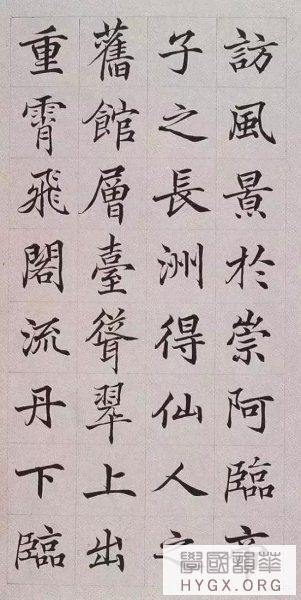 訪風景於崇阿臨
子之長洲得仙人之
舊館層臺聳翠上出
重霄飛閣流丹下臨
學國韻華
HYGX.ORG